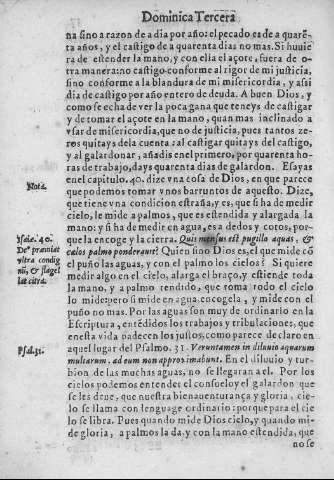 Dominica Tercera
na sino a razon de a dia por año: el pecado es de a quarẽ
ta años, y el castigo de a quarenta dias no mas. Si huuie
ra de estender la mano, y con elia el açote, fuera de o-
tra manera: no castigo conforme al rigor de mi justicia,
sino conforme a la blandura de mi misericordia, y assi
dia de castigo por año entero de deuda. A buen Dios, y
como se echa de ver la poca gana que teneys de castigar
y de tomar el açote en la mano, quan mas inclinado a
vsar de misericordia, que no de justicia, pues tantos ze-
ros quitays de la cuenta: al castigar quitays del castigo,
y al galardonar, añadis en el primero, por quarenta ho-
ras de trabajo, days quarenta dias de galardon. Esayas
en el capitulo. 40. dize vna cosa de Dios, en que parece
Nota.
que podemos tomar vnos barruntos de aquesto. Dize,
que tiene vna condicion estraña, y es, que si ha de medir
cielo, le mide a palmos, que es estendida y alargada la
mano: y si ha de medir en agua, es a dedos y cotos, por-
Isaiæ. 40.
que la encoge y la cierra. Quis mensus est pugillo aquas, &
Deᵒ præmiat
calos palmo ponderauit? Quien sino Dios es, el que mide cõ
vltra condig
el puño las aguas, y con el palmo los cielos? Si quiere
nũ, & flagel
medir algo en el cielo, alarga el braço, y estiende toda
lat citra.
la mano, y a palmo tendido, que toma todo el cielo
lo mide: pero si mide en agua encogela, y mide con el
puño no mas. Por las aguas son muy de ordinario en la
Escriptura, entẽdidos los trabajos y tribulaciones, que
en esta vida padecen los justos, como parece claro en
Psal. 31.
aquel lugar del Psalmo. 31. Veruntamen in diluuio aquarum
multarum, ad eum non approximabunt. En el diluuio y tur-
bion de las muchas aguas, no se llegaran a el. Por los
cielos podemos entender el consuelo y el galardon que
se les deue, que nuestra bienauenturança y gloria, cie-
lo se llama con lenguage ordinario: porque para el cie
lo se libra. Pues quando mide Dios cielo, y quando mi-
de gloria, a palmos la da, y con la mano estendida, que
no se